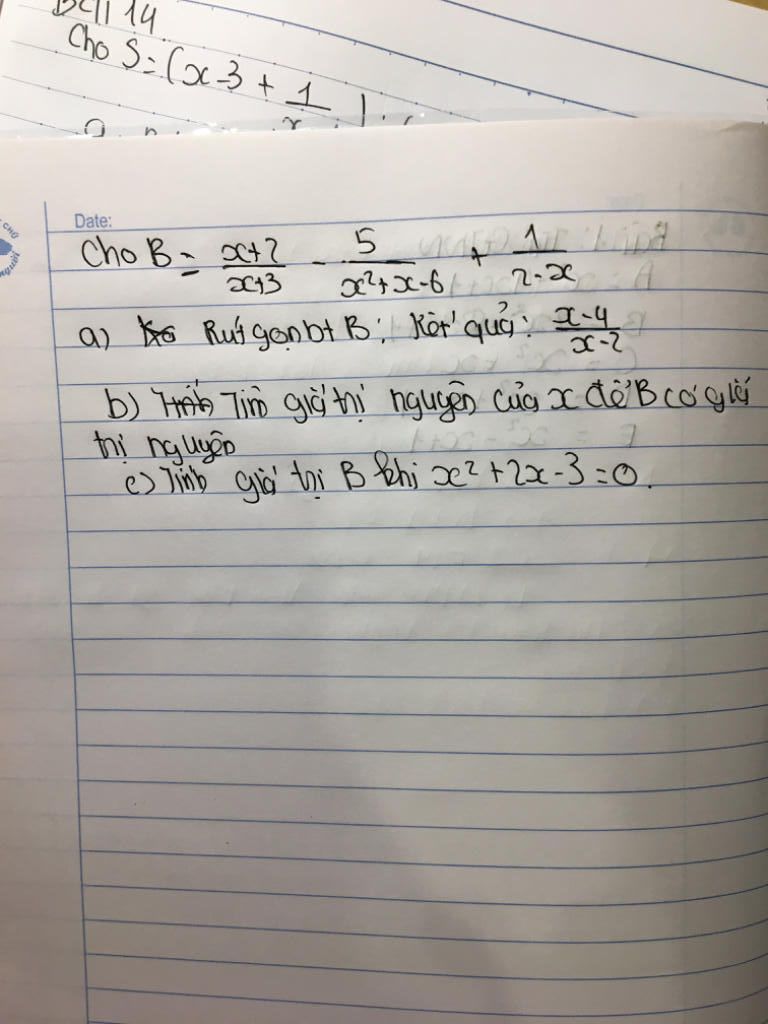 Bài 14
Cho S = (x-3 + 1
Date:
Cho B = \frac{x+2}{x+3} - \frac{5}{x²+x-6} + \frac{1}{2-x}
a) Rút gọn bt B: Kết quả: \frac{x-4}{x-2}
b) Tính Tìm giá trị nguyên của x để B có giá
trị nguyên
c) Tính giá trị B khi x² + 2x - 3 = 0.